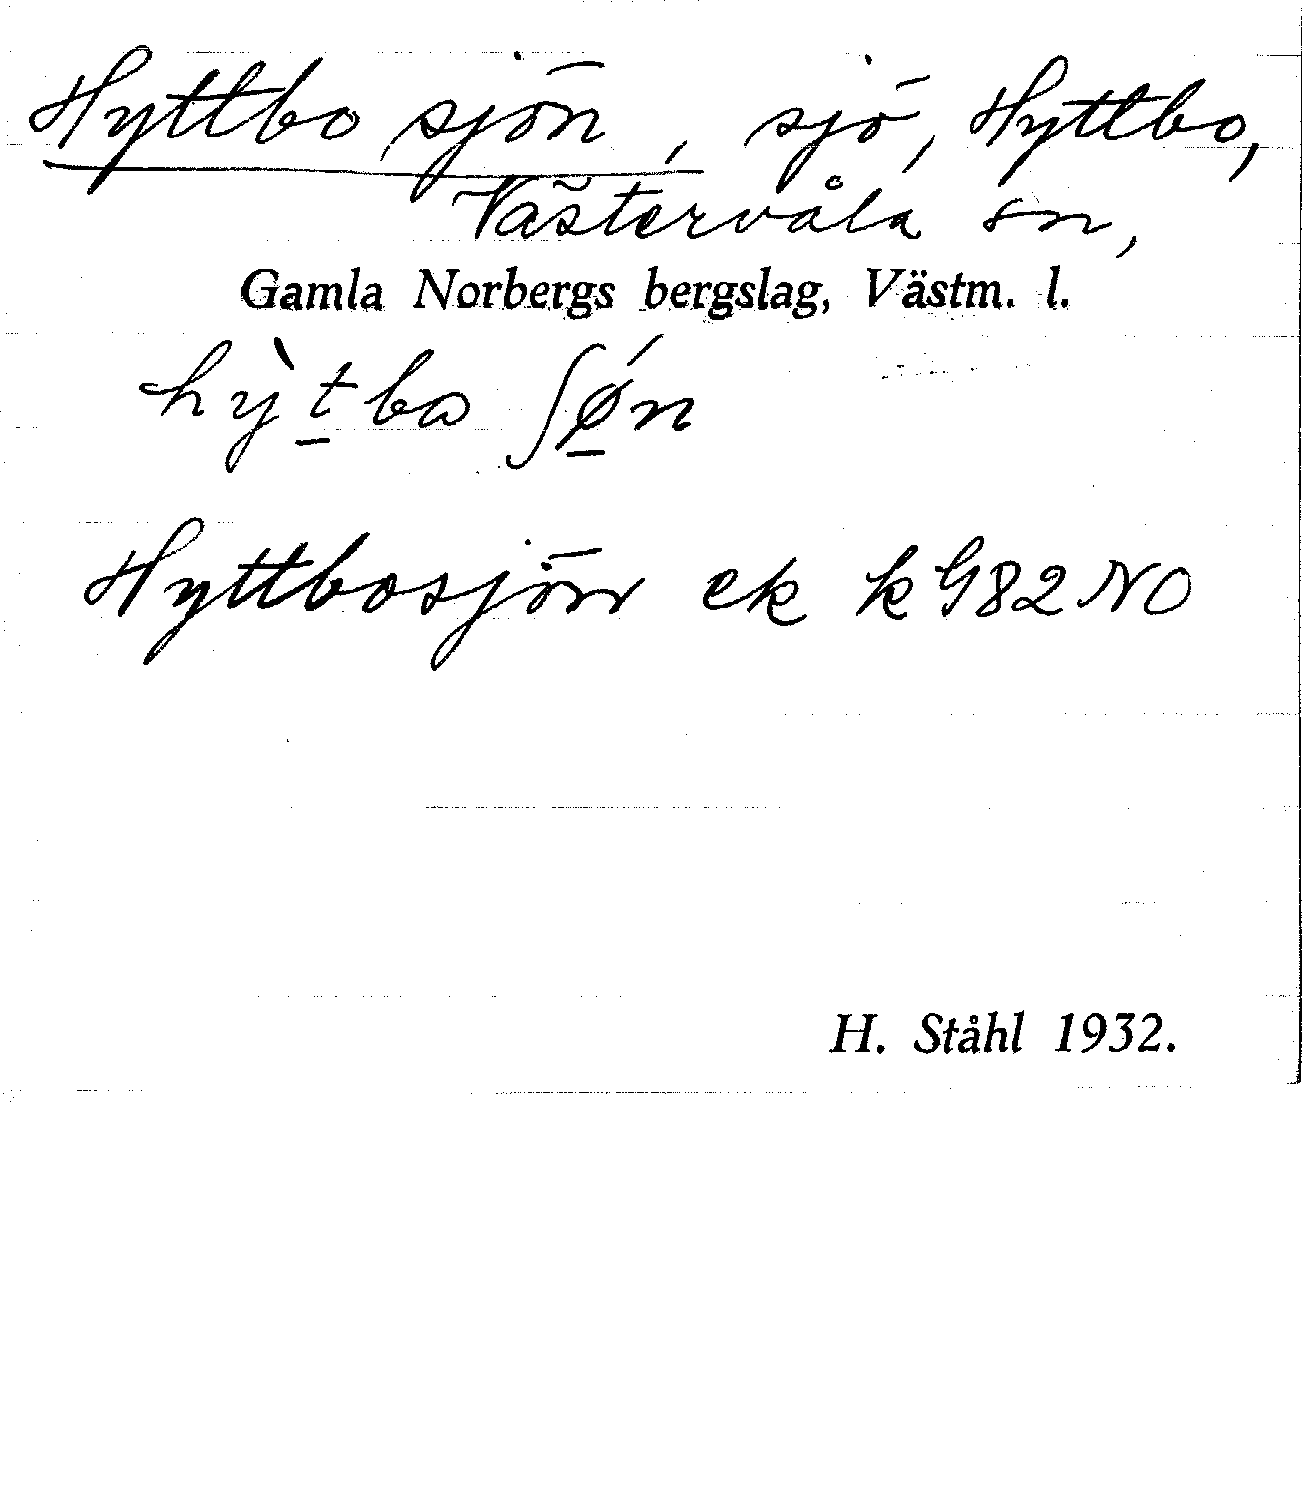 Hyttbo sjön, sjö, Hyttbo,
Västervåla sn,
Gamla Norbergs bergslag, Västm. l.
hỳ̖tba ʃǿn
Hyttbosjön ek k G82NO
H. Ståhl 1932.